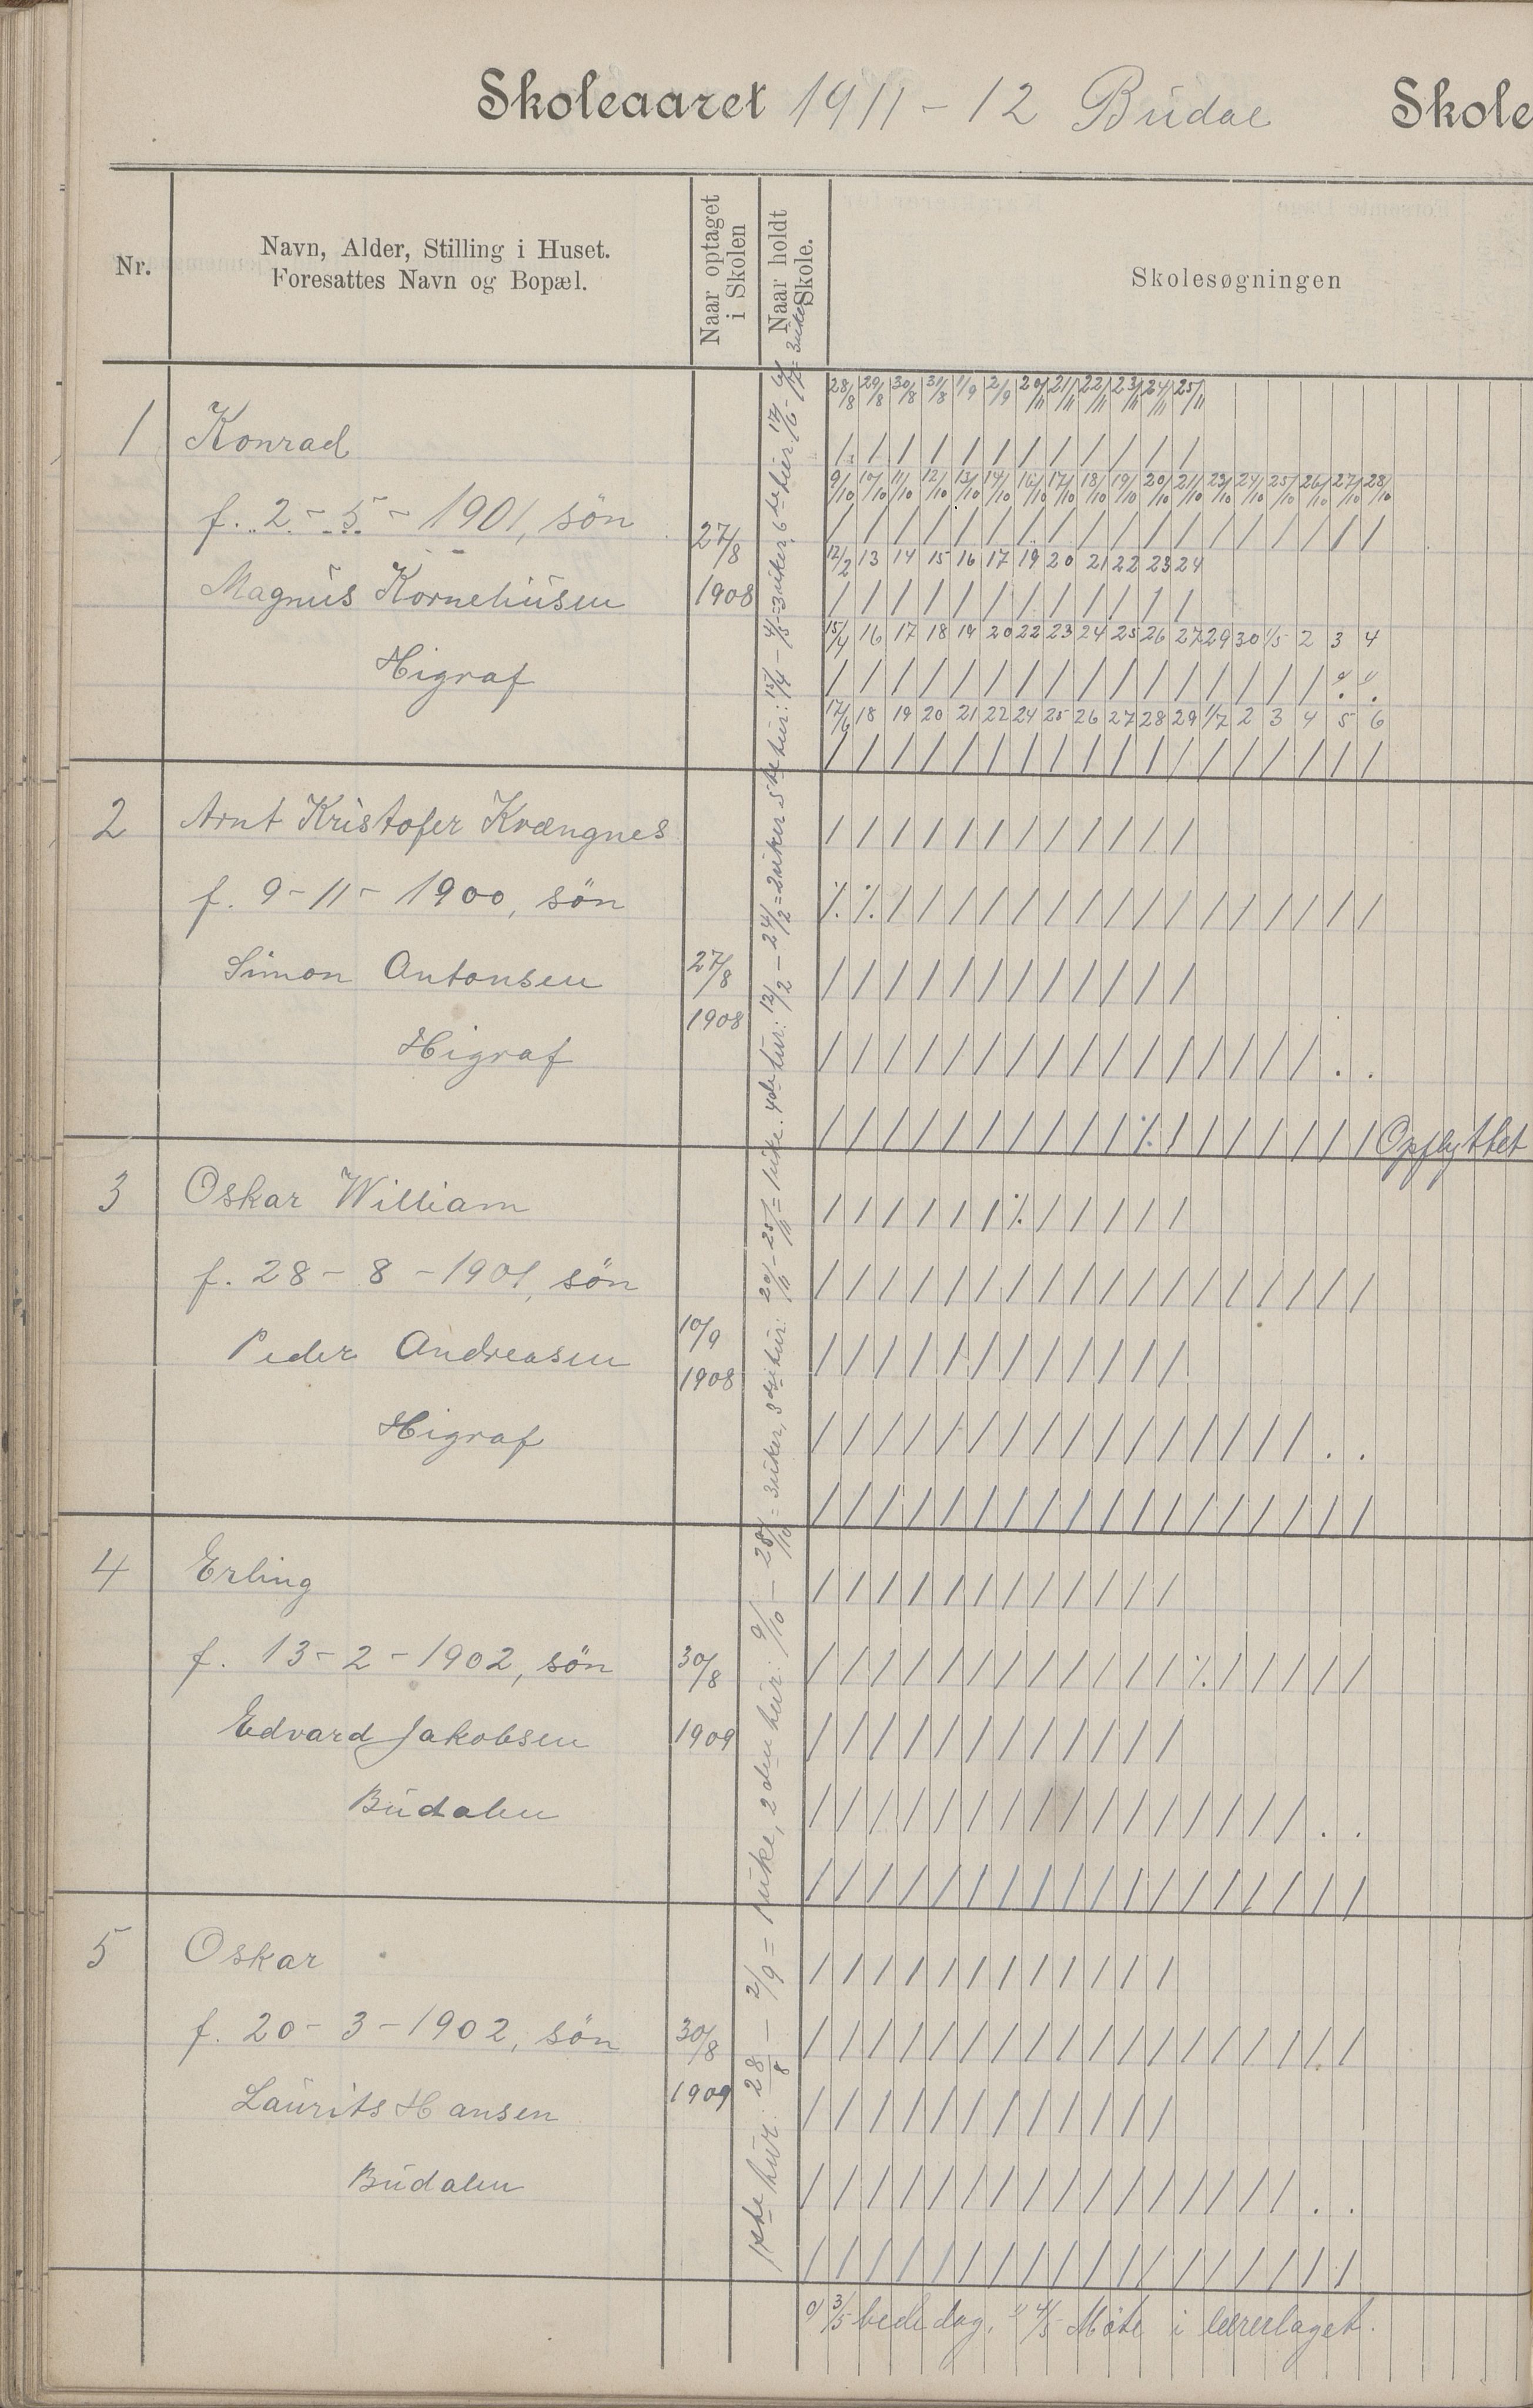 Skoleaaret 1911-12 Budal Skole
Nr.
Navn, Alder, Stilling i Huset.
Foresattes Navn og Bopæl.
Naar optaget
i Skolen
Naar holdt
Skole.
Skolesøgningen
28/8 29/8 30/8 31/8 1/9 2/9 20/11 21/11 22/11 23/11 24/11 25/11
1 Konrad
/ / / / / / / / / / / /
9/10 10/10 11/10 12/10 13/10 14/10 16/10 17/10 18/10 19/10 20/10 21/10 23/10 24/10 25/10 26/10 27/10 28/10
f. 2-5-1901, sön
/ / / / / / / / / / / / / / / / / /
27/8
12/2 13 14 15 16 17 19 20 21 22 23 24
Magnus Korneliusen
1908
/ / / / / / / / / / / /
15/4 16 17 18 19 20 22 23 24 25 26 27 29 30 1/5 2 3 4
Higraf
/ / / / / / / / / / / / / / / / . .
17/6 18 19 20 21 22 24 25 26 27 28 29 1/7 2 3 4 5 6
/ / / / / / / / / / / / / / / / / /
2 Arnt Kristofer Kvængnes
/ / / / / / / / / / / /
f. 9-11-1900, sön
٪ ٪ / / / / / / / / / / / / / / / /
Simon Antonsen
27/8
1908
/ / / / / / / / / / / /
Higraf
/ / / / / / / / / / / / / / / / . .
/ / / / / / / / / / ٪ / / / / / / / Opflyttet
3 Oskar William
/ / / / / / ٪ / / / / /
f. 28-8-1901, sön
/ / / / / / / / / / / / / / / / / /
10/9
Peder Andreasen
1908
/ / / / / / / / / / / /
Higraf
/ / / / / / / / / / / / / / / / . .
/ / / / / / / / / / / / / / / / / /
4 Erling
/ / / / / / / / / / / /
f. 13-2-1902, sön
30/8
/ / / / / / / / / / / / ٪ / / / / /
Edvard Jakobsen
1909
/ / / / / / / / / / / /
Budalen
/ / / / / / / / / / / / / / / / . .
/ / / / / / / / / / / / / / / / / /
5 Oskar
/ / / / / / / / / / / /
f. 20-3-1902, sön
30/8
/ / / / / / / / / / / / / / / / / /
Laurits Hansen
1909
/ / / / / / / / / / / /
Budalen
/ / / / / / / / / / / / / / / / . .
/ / / / / / / / / / / / / / / / / /
1ste tur: 28/8 - 2/9 = 1 uke, 2den tur: 9/10 - 28/10 = 3 uker, 3dje tur: 20/11 - 25/11 = 1 uke. 4de tur: 12/2 - 24/2 = 2 uker 5te tur: 15/4 - 4/5 = 3 uker, 6te tur 17/6 - 6/7 = 3 uker
3/5 bededag, 4/5 Möte i lærerlaget.